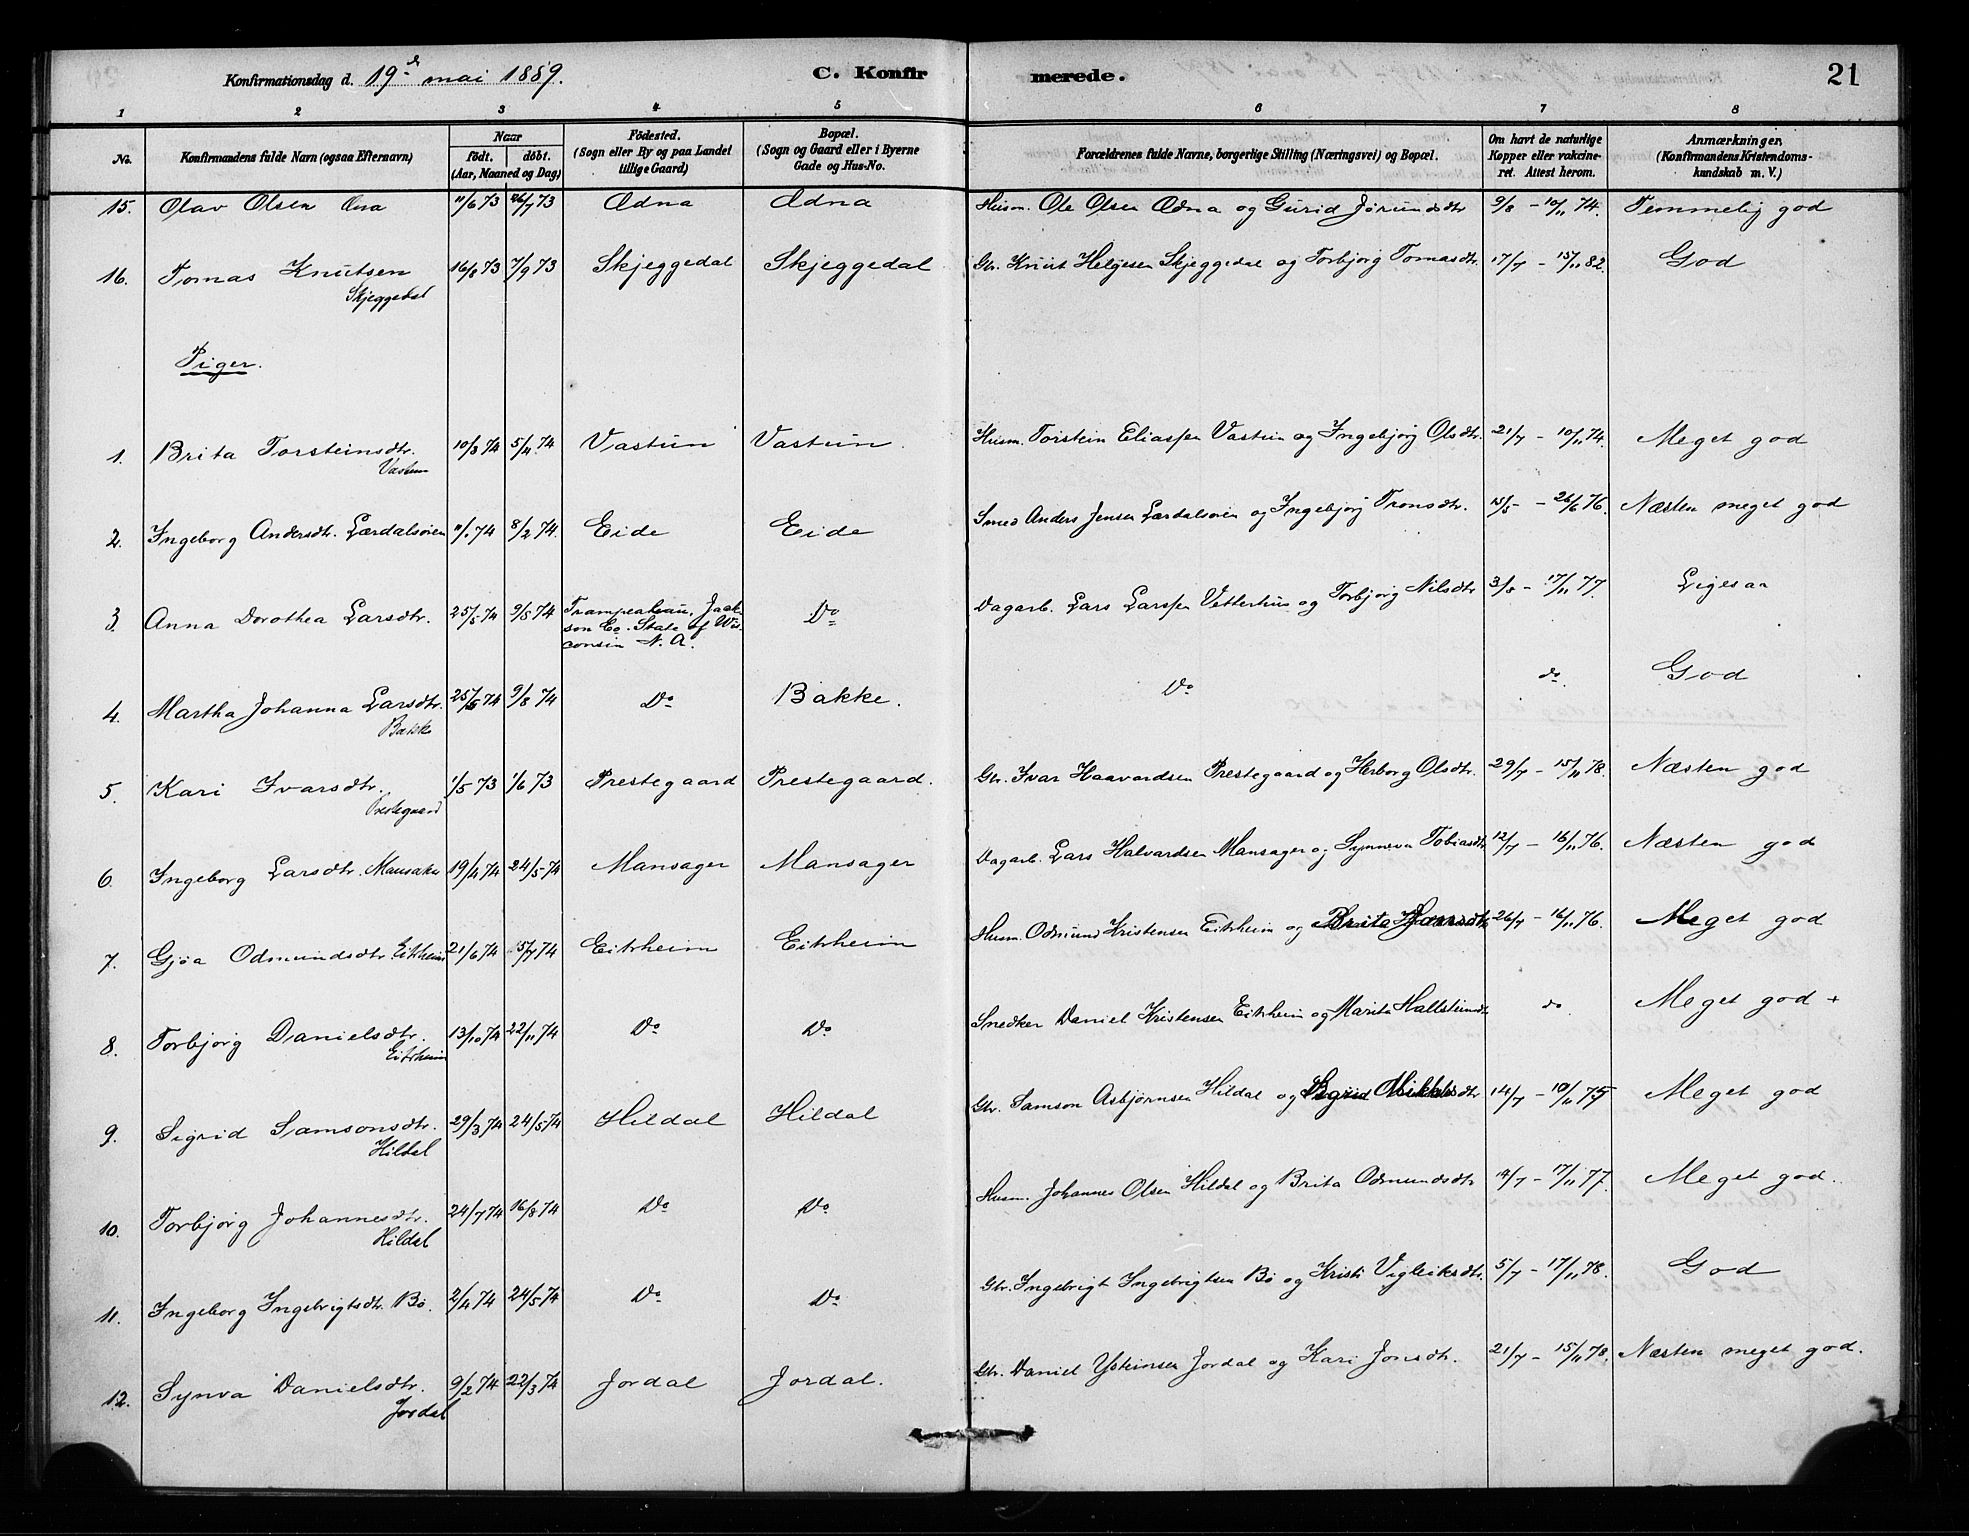 Konfirmationsdag d. 19de mai 1889.
C. Konfirmerede.
21
1 2 3 4 5 6 7 8
No.
Konfirmandens fulde Navn (ogsaa Efternavn)
Naar
födt. döbt.
(Aar, Maaned og Dag)
Födested.
(Sogn eller By og paa Landet
tillige Gaard)
Bopæl.
(Sogn og Gaard eller i Byerne
Gade og Hus-No.
Forældrenes fulde Navne, borgerlige Stilling (Næringsvei) og Bopæl.
Om havt de naturlige
Kopper eller vakcine-
ret. Attest herom.
Anmærkninger,
(Konfirmandens Kristendoms-
kundskab m. V.)
15. Olav Olsen 11/6 73 26/7 73 Ædna Ædna Husm. Ole Olsen Ædna og Gurid Jørundsdtr 9/8 - 10/11 74. Temmelig god
16. Tomas Knutsen 16/8 73 7/9 73 Skjeggedal Skjeggedal Gbr. Knut Helgesen Skjeggedal og Torbjørg Tomasdtr. 17/7 - 15/11 82. God
Skjeggedal
Piger.
1. Brita Torsteinsdtr. 10/3 74 5/4 74 Vastun Vastun. Husm. Torstein Eliassen Vastun og Ingebjørg Olsdtr. 21/7 - 10/11 74. Meget god
Vastun
2. Ingeborg Andersdtr. Lærdalsøren 11/1 74 8/2 74. Eide Eide Smed Anders Jensen Lærdalsøren og Ingebjørg Tronsdtr. 15/5 - 26/6 76. Næsten meget god
3. Anna Dorothea Larsdtr. 25/5 74 9/8 74 Trampealeau, Jack-
son Co. State of Wis-
consin N. A. Do Dagarb. Lars Larssen Vetterhus og Torbjørg Nilsdtr 3/8 - 17/11 77. Ligesaa
4. Martha Johanna Larsdtr. 25/5 74 9/8 74 Do Bakke. Do do God
Bakke
5. Kari Ivarsdtr. 1/5 73 1/6 73 Prestegaard Prestegaard. Gbr. Ivar Haavardsen Prestegaard og Herborg Olsdtr. 29/7 - 15/11 78. Næsten god
Prestegaard
6. Ingeborg Larsdtr. Mansaker 19/4 74 24/5 74 Mansager Mansager Dagarb. Lars Halvardsen Mansager og Synneva Tobiasdtr 12/7 - 16/11 76. Næsten god
7. Gjøa Odmundsdtr. Eitrheim 21/6 74 5/7 74 Eitrheim Eitrheim Husm. Odmund Kristensen Eitrheim og Brita 26/7 - 16/11 76. Meget god
8. Torbjørg Danielsdtr. 13/10 74 22/11 74 Do Do Snedker Daniel Kristensen Eitrheim og Marita Hallsteinsdtr do Meget god +
Eitrheim
9. Sigrid Samsonsdtr. 29/3 74 24/5 74 Hildal Hildal Gbr. Samson Asbjørnsen Hildal og Sigrid 14/7 - 10/11 75 Meget god
Hildal
10. Torbjørg Johannesdtr. 24/7 74 16/8 74 Do Do Husm. Johannes Olsen Hildal og Brita Odmundsdtr 14/7 - 17/11 77. Meget god.
Hildal
11. Ingeborg Ingebrigtsdtr. Bø. 2/4 74 24/5 74 Do Do Gbr. Ingebrigt Ingebrigtsen Bø og Kristi Vigleiksdtr. 5/7 - 17/11 78. God
12. Synva Danielsdtr. 9/2 74 22/3 74 Jordal Jordal. Gbr. Daniel Ysteinsen Jordal og Kari Jonsdtr. 21/7 - 15/11 78. Næsten meget god.
Jordal